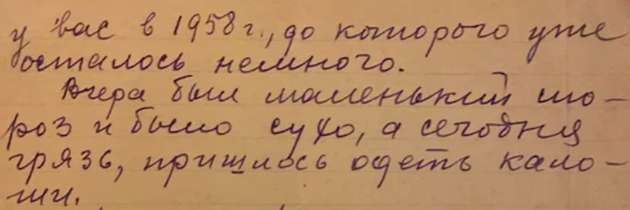 у вас в 1958 г., до которого уже
осталось немного.
Вчера был маленький мо-
роз и было сухо, а сегодня
грязь, пришлось одеть кало-
ши.